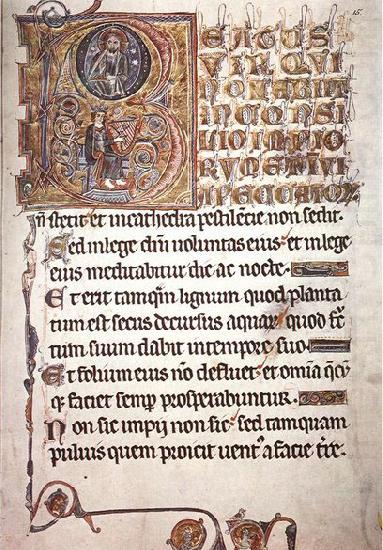 15.
BEATUS
VIR QUI
NON ABIIT
IN CONSI
LIO IMPIO
RUM ET IN VI
A PECCATOR
n̄ stetit et in cathedra pestilēcie non sedit.
Sed in lege dn̄i voluntas eius et in lege
eius meditabitur die ac nocte.
Et erit tamqm̄ lignum quod planta
tum est secus decursus aquar quod fc̄
tum suum dabit in tempore suo
Et folium eius nō defluet et om̄ia q̄cū
q faciet semp prosperabuntur.
Non sic impij non sic sed tamquam
puluis quem proicit uent a facie tr̄e.